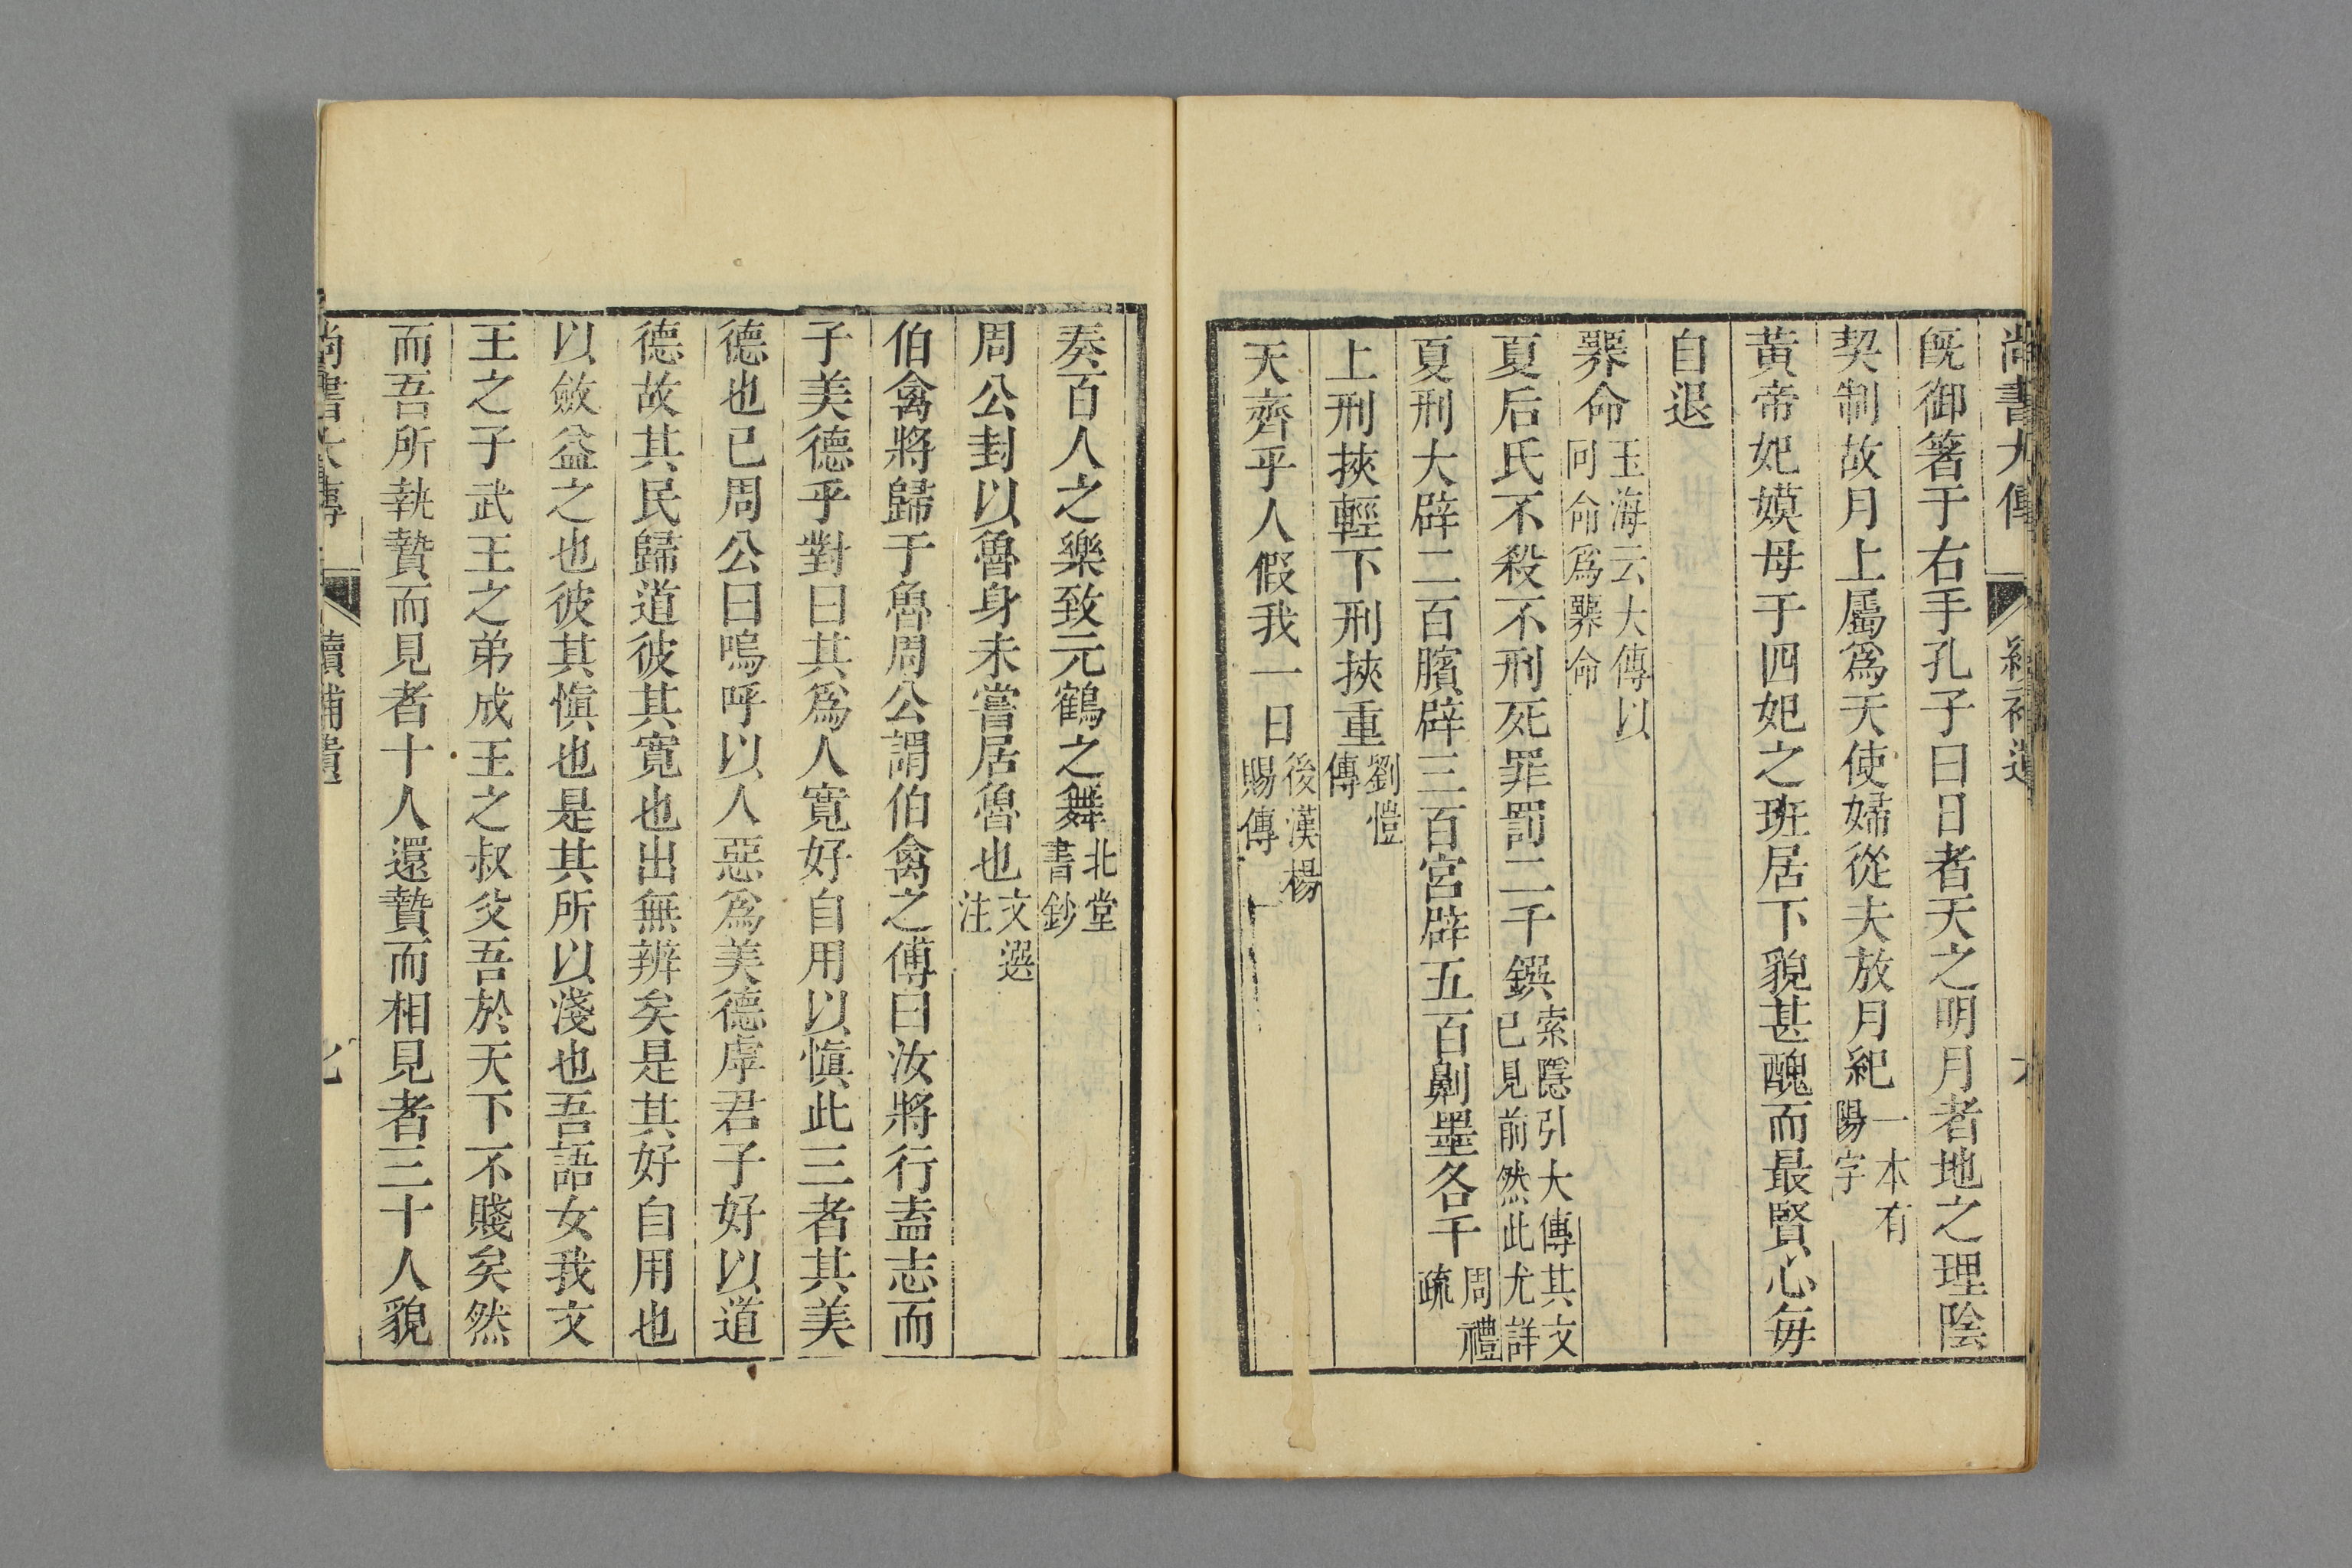 尚書大傳 續補遺
既御著于右手孔子曰日者天之明月者地之理陰
契制故月上屬爲天使婦從夫放月紀一本有陽字
黃帝妃嫫母于四妃之班居下貌甚醜而最賢心每
自退
臩命玉海云大傳以冏命爲臩命
夏后氏不殺不刑死罪罰二千饌索隱引大傳其文已見前然此尤詳
夏刑大辟二百臏辟三百宮辟五百劓墨各千周禮疏
上刑挾輕下刑挾重劉愷傳
天齊乎人假我一日後漢楊賜傳
奏百人之樂致元鶴之舞北堂書鈔
周公封以魯身未嘗居魯也文選注
伯禽將歸于魯周公謂伯禽之傅曰汝將行盍志而
子美德乎對曰其爲人寬好自用以愼此三者其美
德也已周公曰嗚呼以人惡爲美德虖君子好以道
德故其民歸道彼其寬也出無辨矣是其好自用也
以斂益之也彼其愼也是其所以淺也吾語女我文
王之子武王之弟成王之叔父吾於天下不賤矣然
而吾所執贄而見者十人還贄而相見者三十人貌
尚書大傳 續補遺 七